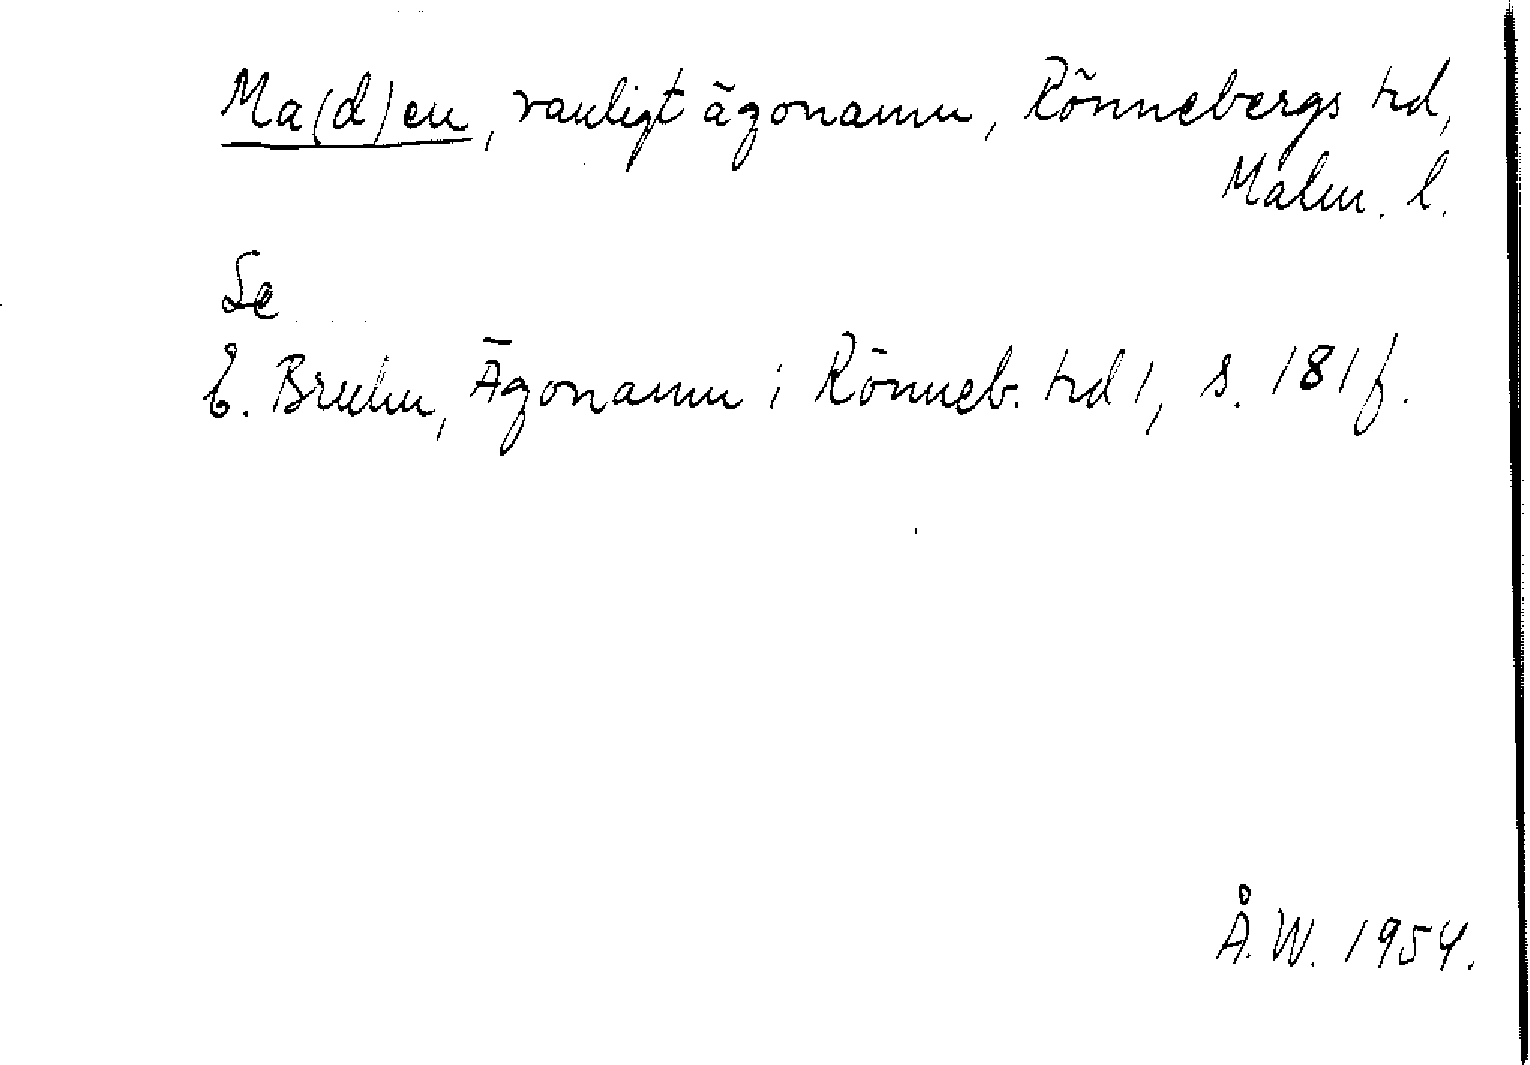 Ma(d)en, vanligt ägonamn, Rönnebergs hd,
Malm. l.
Se
E. Bruhn, Ägonamn i Rönneb. hd 1, s. 181 f.
Å. W. 1954.